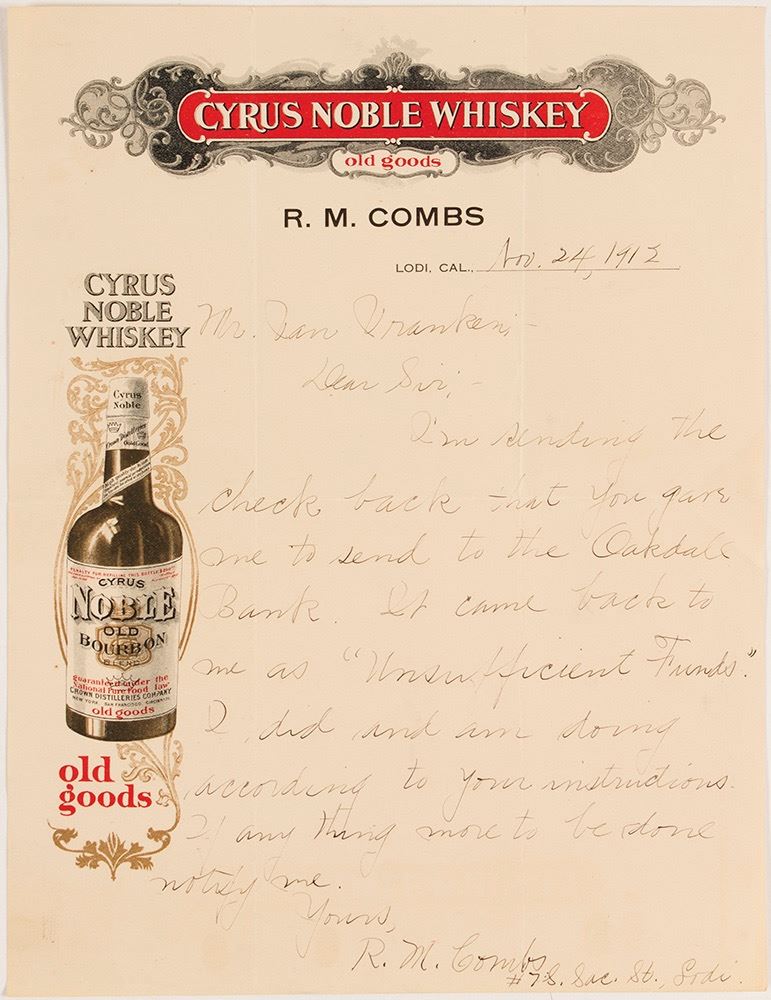 CYRUS NOBLE WHISKEY
old goods
R. M. COMBS
LODI, CAL., Nov. 24, 1912
CYRUS
NOBLE
WHISKEY
Cyrus
Noble
PENALTY FOR REFILLING THIS BOTTLE
CYRUS
NOBLE
OLD
BOURBON
BLEND
guaranteed under the
National Pure Food law
CROWN DISTILLERIES COMPANY
NEW YORK. SAN FRANCISCO. CINCINNATI.
old goods
old
goods
Mr. Van Vranken,-
Dear Sir,-
I'm sending the
check back that you gave
me to send to the Oakdale
Bank. It came back to
me as "Unsufficient Funds."
I did and am doing
according to your instructions.
If any thing more to be done
notify me.
Yours,
R. M. Combs
#7 S. Sac. St., Lodi.